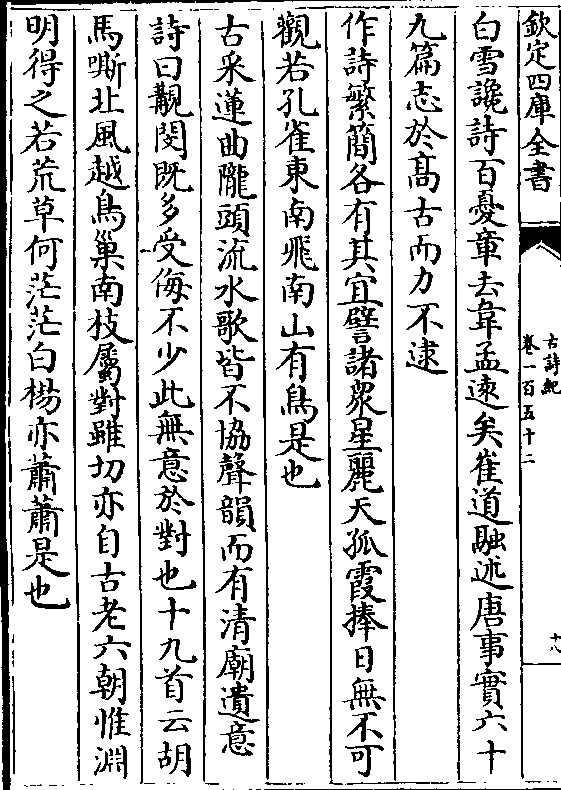 欽定四庫全書
古詩紀
卷一百五十二
十八
白雪讒詩百憂章去韋孟逺矣崔道融述唐事實六十
九篇志於髙古而力不逮
作詩繁簡各有其宜譬諸衆星麗天孤霞捧日無不可
觀若孔雀東南飛南山有鳥是也
古采蓮曲隴頭流水歌皆不協聲韻而有清廟遺意
詩曰覯閔既多受侮不少此無意於對也十九首云胡
馬嘶北風越鳥巢南枝屬對雖切亦自古老六朝惟淵
明得之若荒草何茫茫白楊亦蕭蕭是也